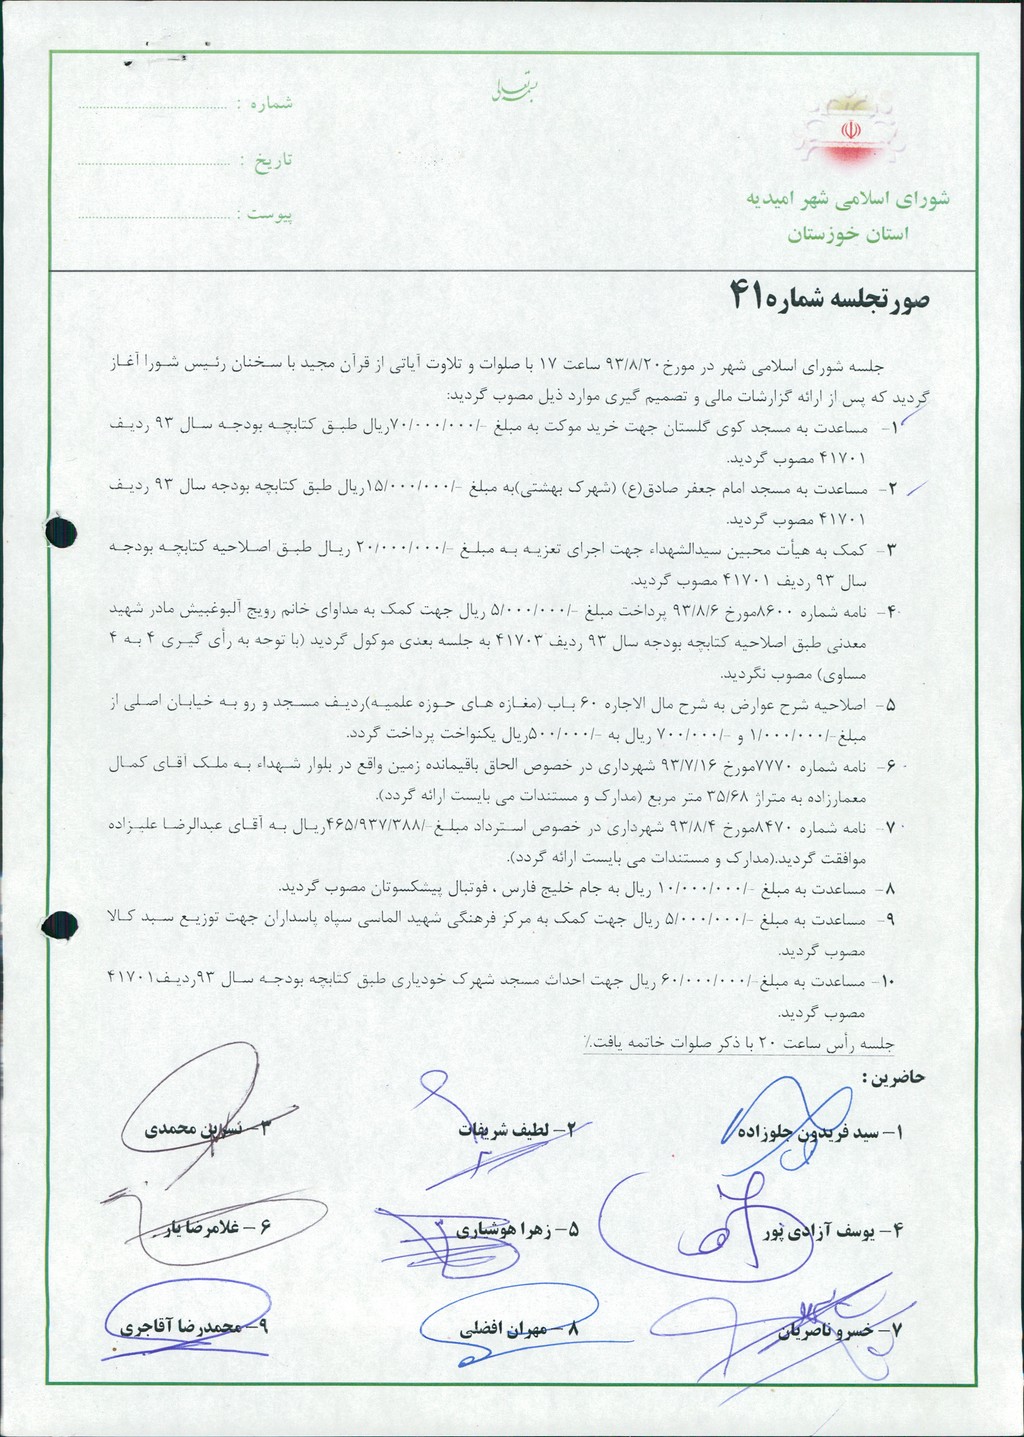 بسمه تعالی
شورای اسلامی شهر امیدیه
استان خوزستان
شماره :
تاریخ :
پیوست :
صورتجلسه شماره ۴۱
جلسه شورای اسلامی شهر در مورخ ۹۳/۸/۲۰ ساعت ۱۷ با صلوات و تلاوت آیاتی از قرآن مجید با سخنان رئیس شورا آغاز
گردید که پس از ارائه گزارشات مالی و تصمیم گیری موارد ذیل مصوب گردید:
۱- مساعدت به مسجد کوی گلستان جهت خرید موکت به مبلغ -/۷۰/۰۰۰/۰۰۰ریال طبق کتابچه بودجه سال ۹۳ ردیف
۴۱۷۰۱ مصوب گردید.
۲- مساعدت به مسجد امام جعفر صادق(ع) (شهرک بهشتی)به مبلغ -/۱۵/۰۰۰/۰۰۰ریال طبق کتابچه بودجه سال ۹۳ ردیف
۴۱۷۰۱ مصوب گردید.
۳- کمک به هیأت محبین سیدالشهداء جهت اجرای تعزیه به مبلغ -/۲۰/۰۰۰/۰۰۰ ریال طبق اصلاحیه کتابچه بودجه
سال ۹۳ ردیف ۴۱۷۰۱ مصوب گردید.
۴- نامه شماره ۸۶۰۰مورخ ۹۳/۸/۶ پرداخت مبلغ -/۵/۰۰۰/۰۰۰ ریال جهت کمک به مداوای خانم رویج آلبوغبیش مادر شهید
معدنی طبق اصلاحیه کتابچه بودجه سال ۹۳ ردیف ۴۱۷۰۳ به جلسه بعدی موکول گردید (با توجه به رأی گیری ۴ به ۴
مساوی) مصوب نگردید.
۵- اصلاحیه شرح عوارض به شرح مال الاجاره ۶۰ باب (مغازه های حوزه علمیه)ردیف مسجد و رو به خیابان اصلی از
مبلغ-/۱/۰۰۰/۰۰۰ و -/۷۰۰/۰۰۰ ریال به -/۵۰۰/۰۰۰ریال یکنواخت پرداخت گردد.
۶- نامه شماره ۷۷۷۰مورخ ۹۳/۷/۱۶ شهرداری در خصوص الحاق باقیمانده زمین واقع در بلوار شهداء به ملک آقای کمال
معمارزاده به متراژ ۳۵/۶۸ متر مربع (مدارک و مستندات می بایست ارائه گردد).
۷- نامه شماره ۸۴۷۰مورخ ۹۳/۸/۴ شهرداری در خصوص استرداد مبلغ-/۴۶۵/۹۳۷/۳۸۸ریال به آقای عبدالرضا علیزاده
موافقت گردید.(مدارک و مستندات می بایست ارائه گردد).
۸- مساعدت به مبلغ -/۱۰/۰۰۰/۰۰۰ ریال به جام خلیج فارس ، فوتبال پیشکسوتان مصوب گردید.
۹- مساعدت به مبلغ -/۵/۰۰۰/۰۰۰ ریال جهت کمک به مرکز فرهنگی شهید الماسی سپاه پاسداران جهت توزیع سبد کالا
مصوب گردید.
۱۰- مساعدت به مبلغ-/۶۰/۰۰۰/۰۰۰ ریال جهت احداث مسجد شهرک خودیاری طبق کتابچه بودجه سال ۹۳ردیف۴۱۷۰۱
مصوب گردید.
جلسه رأس ساعت ۲۰ با ذکر صلوات خاتمه یافت.٪
حاضرین :
۱- سید فریدون جلوزاده ۲- لطیف شریفات ۳- نسرین محمدی
۴- یوسف آزادی پور ۵- زهرا هوشیاری ۶- غلامرضا یار
۷- خسرو ناصریان ۸- مهران افضلی ۹- محمدرضا آقاجری